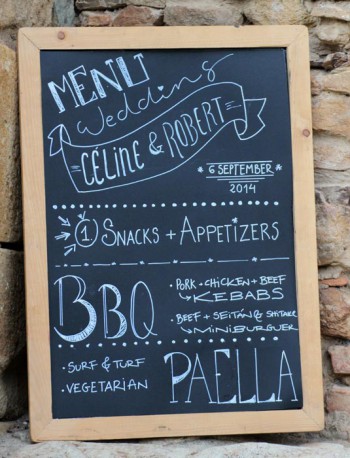 MENU
Wedding
CÉLINE & ROBERT
6 SEPTEMBER
2014
1 SNACKS + APPETIZERS
BBQ
PORK + CHICKEN + BEEF
KEBABS
BEEF + SEITÁN & SHITAKE
MINIBURGUER
PAELLA
· SURF & TURF
· VEGETARIAN